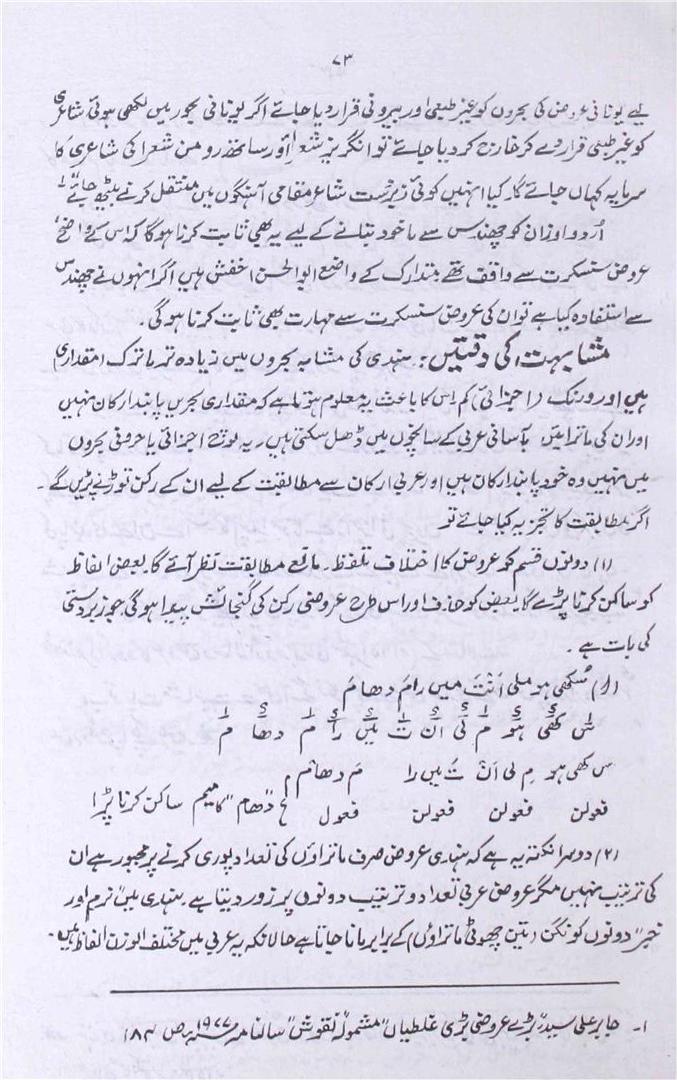 ۷۳
لیے یونانی عروض کی بحروں کو غیر طبیعی اور بیرونی قرار دیا جائے اگر یونانی بحور میں لکھی ہوئی شاعری
کو غیر طبعی قرار دے کر خارج کر دیا جائے تو انگریز شعرا اور ساتھ رومن شعرا کی شاعری کا
سرمایہ کہاں جائے گا۔ کیا انہیں کوئی زبردست شاعر مقامی آہنگوں میں منتقل کرنے بیٹھ جائے۱
اُردو اوزان کو چھندس سے ماخوذ بتانے کے لیے یہ بھی ثابت کرنا ہوگا کہ اس کے واضع
عروض سنسکرت سے واقف تھے متدارک کے واضع ابوالحسن اخفش ہیں اگر انہوں نے چھندس
سے استفادہ کیا ہے تو ان کی عروض سنسکرت سے مہارت بھی ثابت کرنا ہوگی۔
مشابہت کی دقتیں: ہندی کی مشابہ بحروں میں زیادہ تر ماترک (مقداری)
ہیں اور ورنک (اجزائی) کم اس کا باعث یہ معلوم ہوتا ہے کہ مقداری بحریں پابند ارکان نہیں
اور ان کی ماترائیں بآسانی عربی کے سانچوں میں ڈھل سکتی ہیں۔ یہ لوچ اجزائی یا حروفی بحروں
میں نہیں وہ خود پابند ارکان ہیں اور عربی ارکان سے مطابقت کے لیے ان کے رکن توڑنے پڑیں گے۔
اگر مطابقت کا تجزیہ کیا جائے تو
(۱) دونوں قسم کے عروض کا اختلاف تلفظ۔ مانع مطابقت نظر آئے گا۔ بعض الفاظ
کو ساکن کرنا پڑے گا بعض کو حذف اور اس طرح عروضی رکن کی گنجائش پیدا ہوگی جو زبردستی
کی بات ہے۔
(ا) سُکھی ہو ملی اَنْتَ میں رامَ دھامَ
سُ کھی ہو مِ لی ان تَ میں را مَ دھا مَ
س کھی ہو مِ لی اَنْ تَ میں را مَ دھامْ
فعولن فعولن فعولن فعول ع "دھام" کا میم ساکن کرنا پڑا
(۲) دوسرا نکتہ یہ ہے کہ ہندی عروض صرف ماتراؤں کی تعداد پوری کرنے پر مجبور ہے ان
کی ترتیب نہیں مگر عروض عربی تعداد و ترتیب دونوں پر زور دیتا ہے۔ ہندی میں "نرم اور
خبر" دونوں کو نگن (تین چھوٹی ماتراؤں) کے برابر مانا جاتا ہے حالانکہ یہ عربی میں مختلف الوزن الفاظ ہیں۔
۱۔ جابر علی سید "بڑے عروضی بڑی غلطیاں" مشمولہ "نقوش" سالنامہ ۱۹۷۷ء ص ۱۸۴